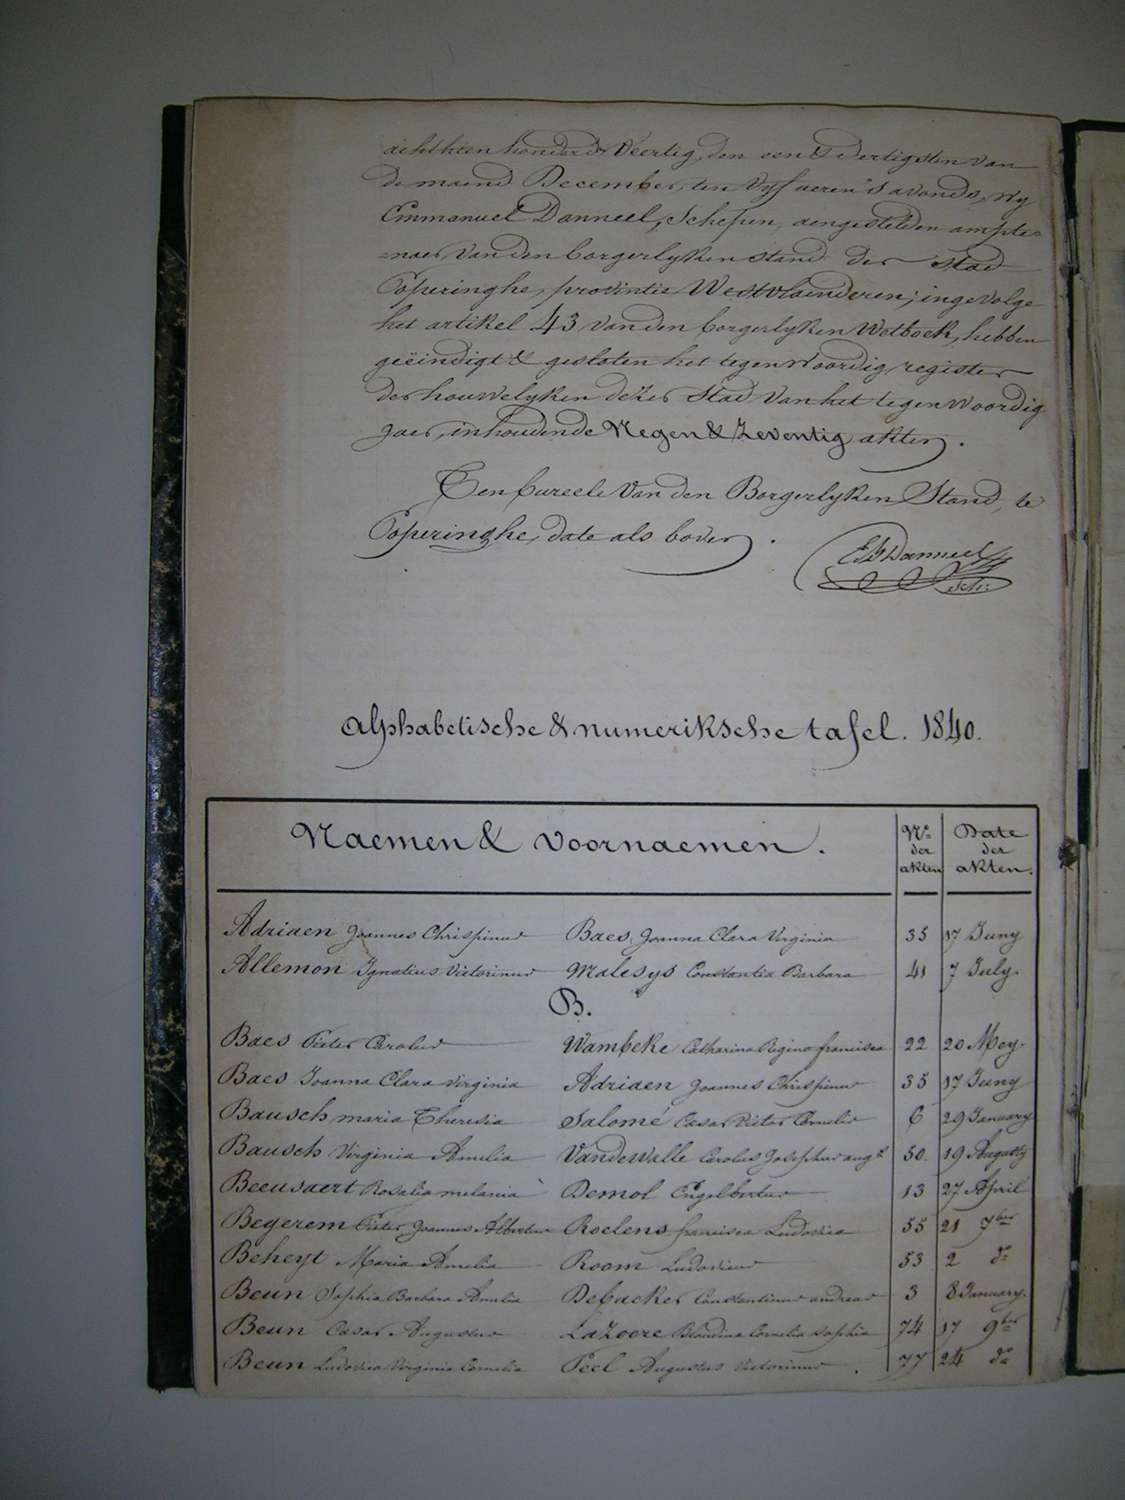 achthien honderd Veertig, den een & dertigsten van
de maend December, ten Vyf ueren 's avonds, wy
Emmanuel Danneel, Schepen, aengestelden ampte=
=naer van den borgerlyken stand der Stad
Poperinghe, provintie Westvlaenderen; ingevolge
het artikel 43 van den borgerlyken Wetboek, hebben
geëindigt & gesloten het tegenwoordig register
der houwelyken dezer Stad van het tegenwoordig
jaer, inhoudende Negen & Zeventig akten.
Ten bureele van den Borgerlyken Stand, te
Poperinghe, date als boven.
Danneel
Sch:
Alphabetische & numeriksche tafel. 1840.
Naemen & Voornaemen. No der akten Date der akten.
Adriaen Joannes Chrispinus Baes, Joanna Clara Virginia 35 17 Juny
Allemon Ignatius Victorinus Malesys Constantia Barbara 41 7 July.
B.
Baes Pieter Carolus Wambeke Catharina Regina francisca 22 20 Mey.
Baes Joanna Clara Virginia Adriaen Joannes Chrispinus 35 17 Juny
Bausch maria Theresia Salomé Cesar Victor Cornelis 6 29 January.
Bausch Virginia Amelia Vandewalle Carolus Josephus augt 50. 19 Augusty
Beeusaert Rosalia melania Demol Engelbertus 13 27 April
Begerem Pieter Joannes Albertus Roelens francisca Ludovica 55 21 7ber
Beheyt Maria Amelia Room Ludovicus 53 2 do
Beun Sophia Barbara Amelia Debacker Constantinus andreas 3 8 January.
Beun Cesar Augustus LaZoore Blandina Cornelia Sophia 74 17 9ber
Beun Ludovica Virginia Cornelia Peel Augustus Victorinus. 77 24 do